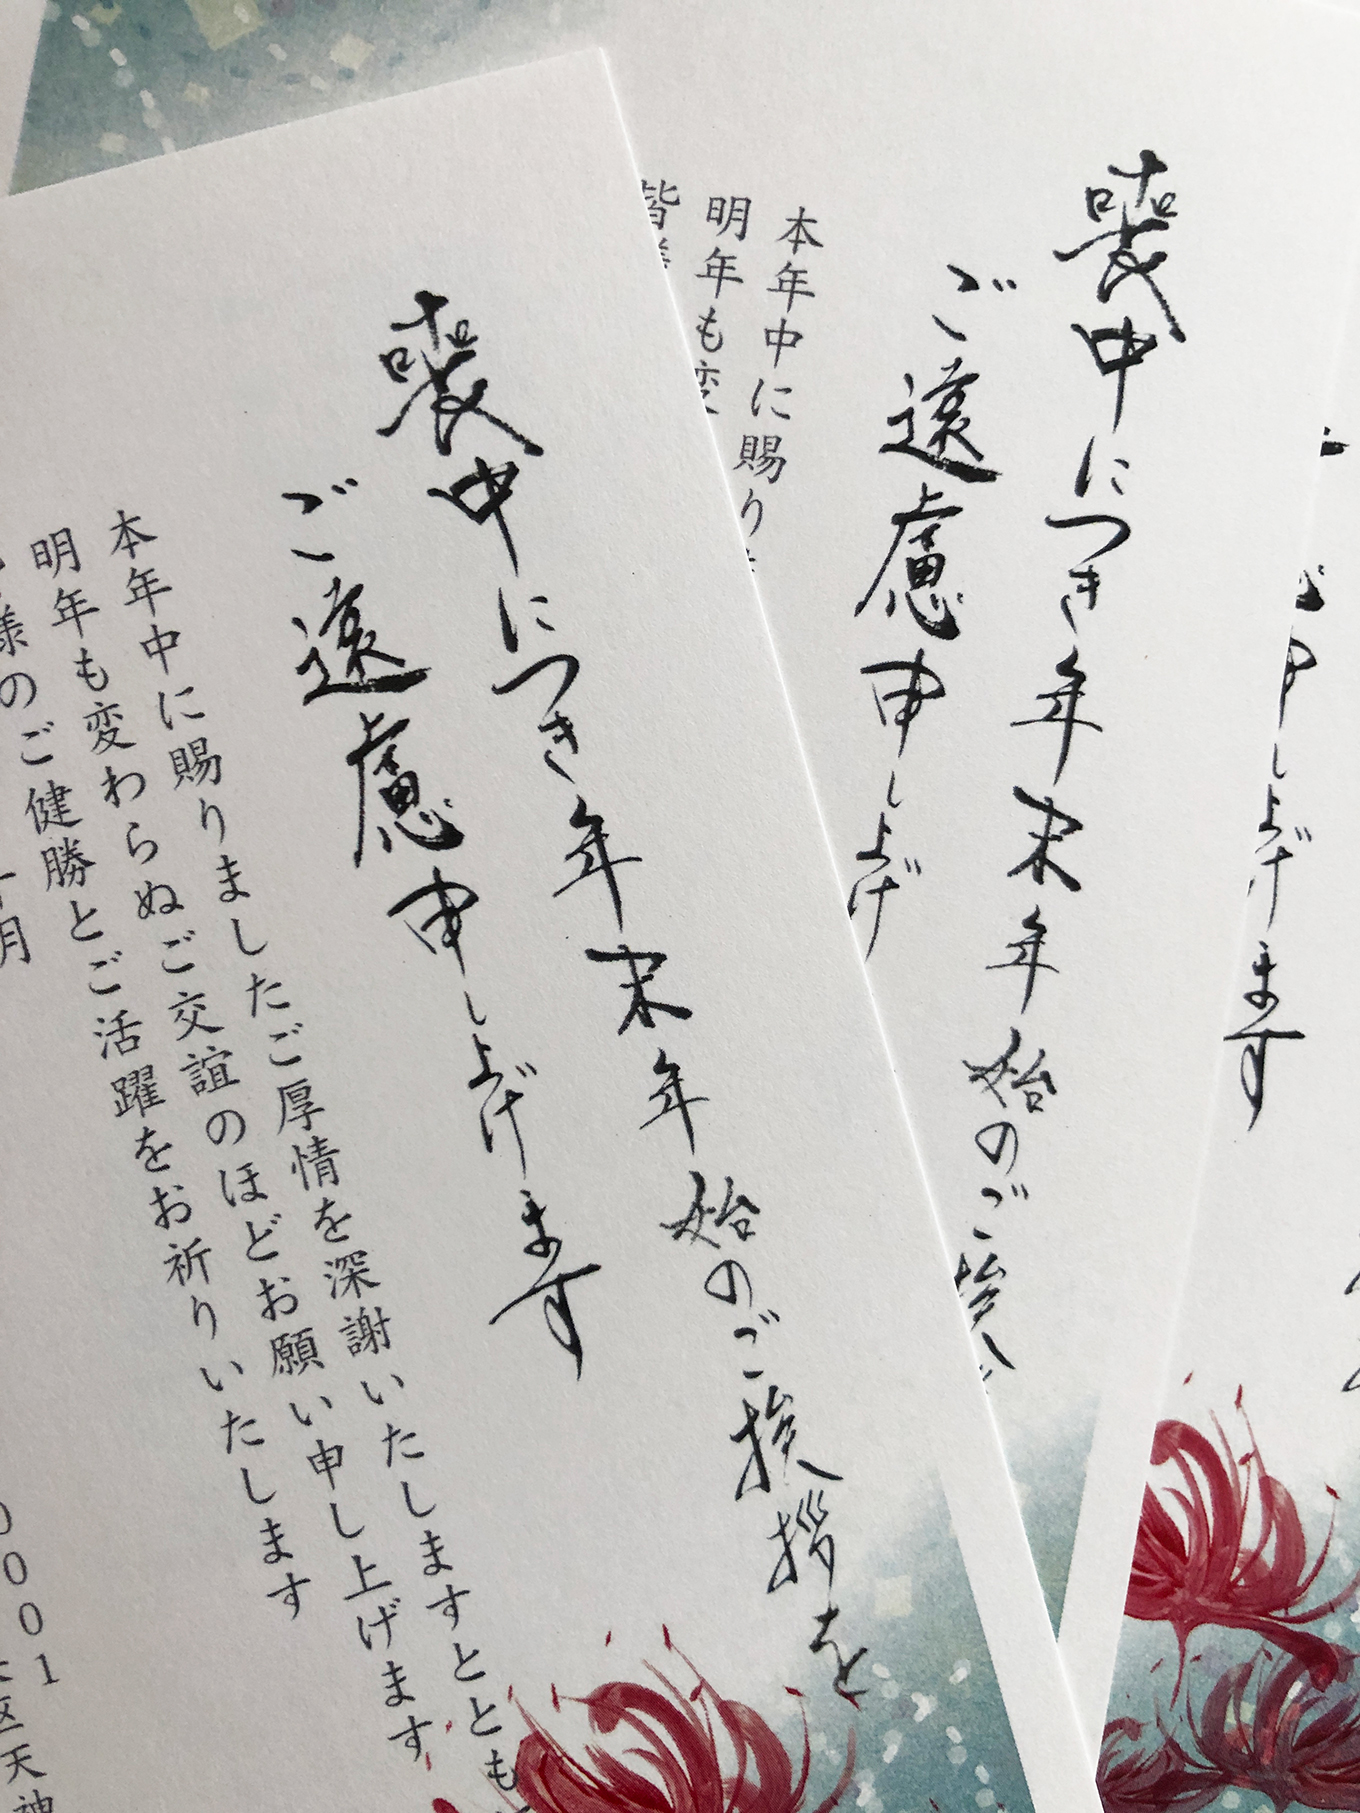 喪中につき年末年始のご挨拶を
ご遠慮申し上げます
本年中に賜りましたご厚情を深謝いたしますととも
明年も変わらぬご交誼のほどお願い申し上げます
様のご健勝とご活躍をお祈りいたします
月
0001
区天神
喪中につき年末年始のご挨
ご遠慮申し上げ
本年中に賜り
明年も変
皆様
申し上げます